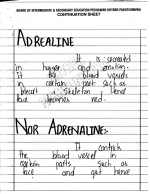 BOARD OF INTERMEDIATE & SECONDARY EDUCATION PESHAWAR KHYBER PAKHTUNKHWA
CONTINUATION SHEET
ADREALINE
It is secreated
in hunger and emotion.
It the blood vessels
in certain parts such as
skeleton. Hence
face becomes red.
NOR ADRENALINE:-
It controls
the blood vessel in
certain parts such as
face and gut hence